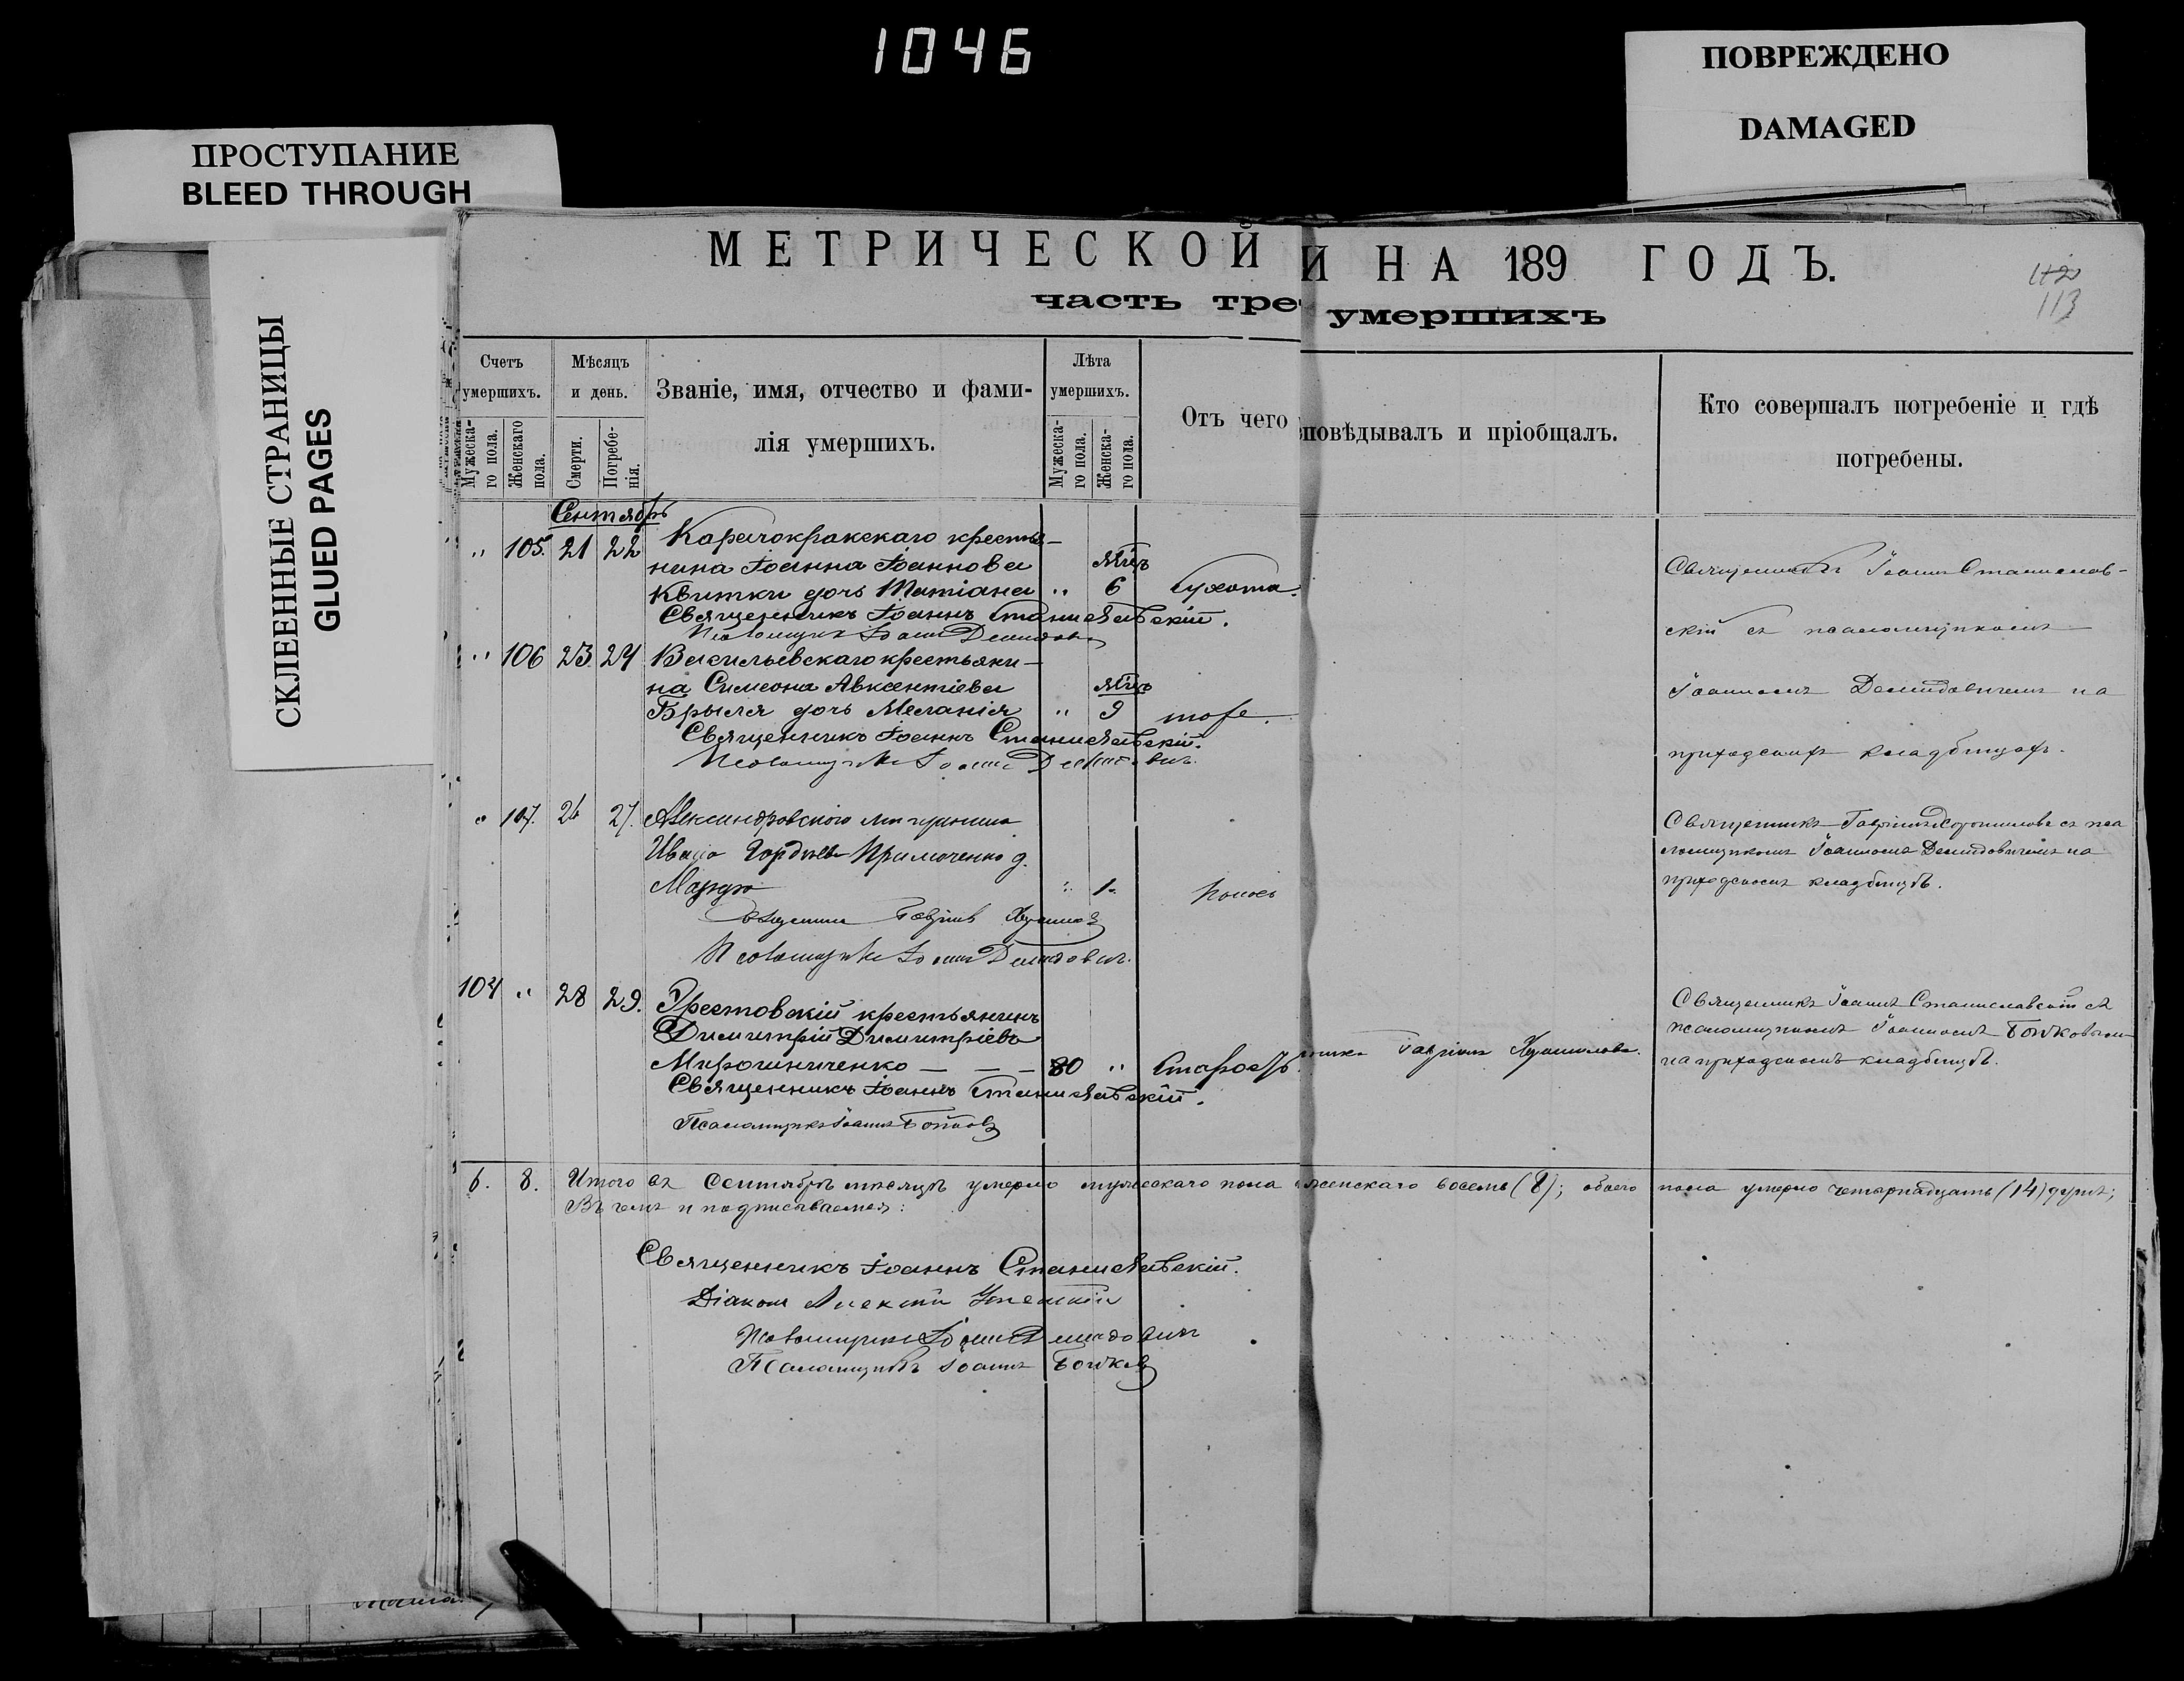 1046
ПОВРЕЖДЕНО
DAMAGED
ПРОСТУПАНИЕ
BLEED THROUGH
СКЛЕЕННЫЕ СТРАНИЦЫ
GLUED PAGES
МЕТРИЧЕСКОЙ И НА 189 ГОДЪ.
часть тре умершихъ
113
Счетъ умершихъ.
Мужеска-го пола.
Женскаго пола.
Мѣсяцъ и день.
Смерти.
Погребе-нія.
Званіе, имя, отчество и фами-
лія умершихъ.
Лѣта умершихъ.
Мужеска-го пола.
Женска-го пола.
Отъ чего
повѣдывалъ и пріобщалъ.
Кто совершалъ погребеніе и гдѣ
погребены.
Сентябрь
" 105. 21 22 Карачокракскаго крестья-
нина Іоанна Іоаннова Мѣц
Квитки дочь Татіана " 6 Сухота.
Священникъ Іоаннъ Станиславскій.
Псаломщикъ Іоаннъ Демидовичъ
Священникъ Іоаннъ Станислав-
скій съ псаломщикомъ
Іоанномъ Демидовичемъ на
приходскомъ кладбищѣ.
" 106 23 24 Васильевскаго крестьяни-
на Симеона Авксентіева Мѣц
Брыля дочь Меланія " 9 тоже.
Священникъ Іоаннъ Станиславскій.
Псаломщикъ Іоаннъ Демидовичъ.
" 107. 26 27. Александровского мещанина
Ивана Гордѣева Примоченко д.
" 1. Поносъ
Псаломщикъ Іоаннъ Демидовичъ.
Священникъ Гавріилъ съ пса
ломщикомъ Іоанномъ Демидовичемъ на
приходскомъ кладбищѣ.
104 " 28 29. крестьянинъ
Димитрій Димитріевъ
Мирошниченко — — — 80 " Старость
Священникъ Іоаннъ Станиславскій.
Псаломщикъ Іоаннъ Бойковъ
Гавріилъ
Священникъ Іоаннъ Станиславскій съ
псаломщикомъ Іоанномъ Бойковымъ
на приходскомъ кладбищѣ.
6. 8. Итого въ Сентябрѣ мѣсяцѣ умерло мужескаго пола женскаго восемь (8); обоего пола умерло четырнадцать (14) душъ;
Въ чемъ и подписываемся:
Священникъ Іоаннъ Станиславскій.
Діаконъ Алексій
Псаломщикъ Іоаннъ Демидовичъ
Псаломщикъ Іоаннъ Бойковъ